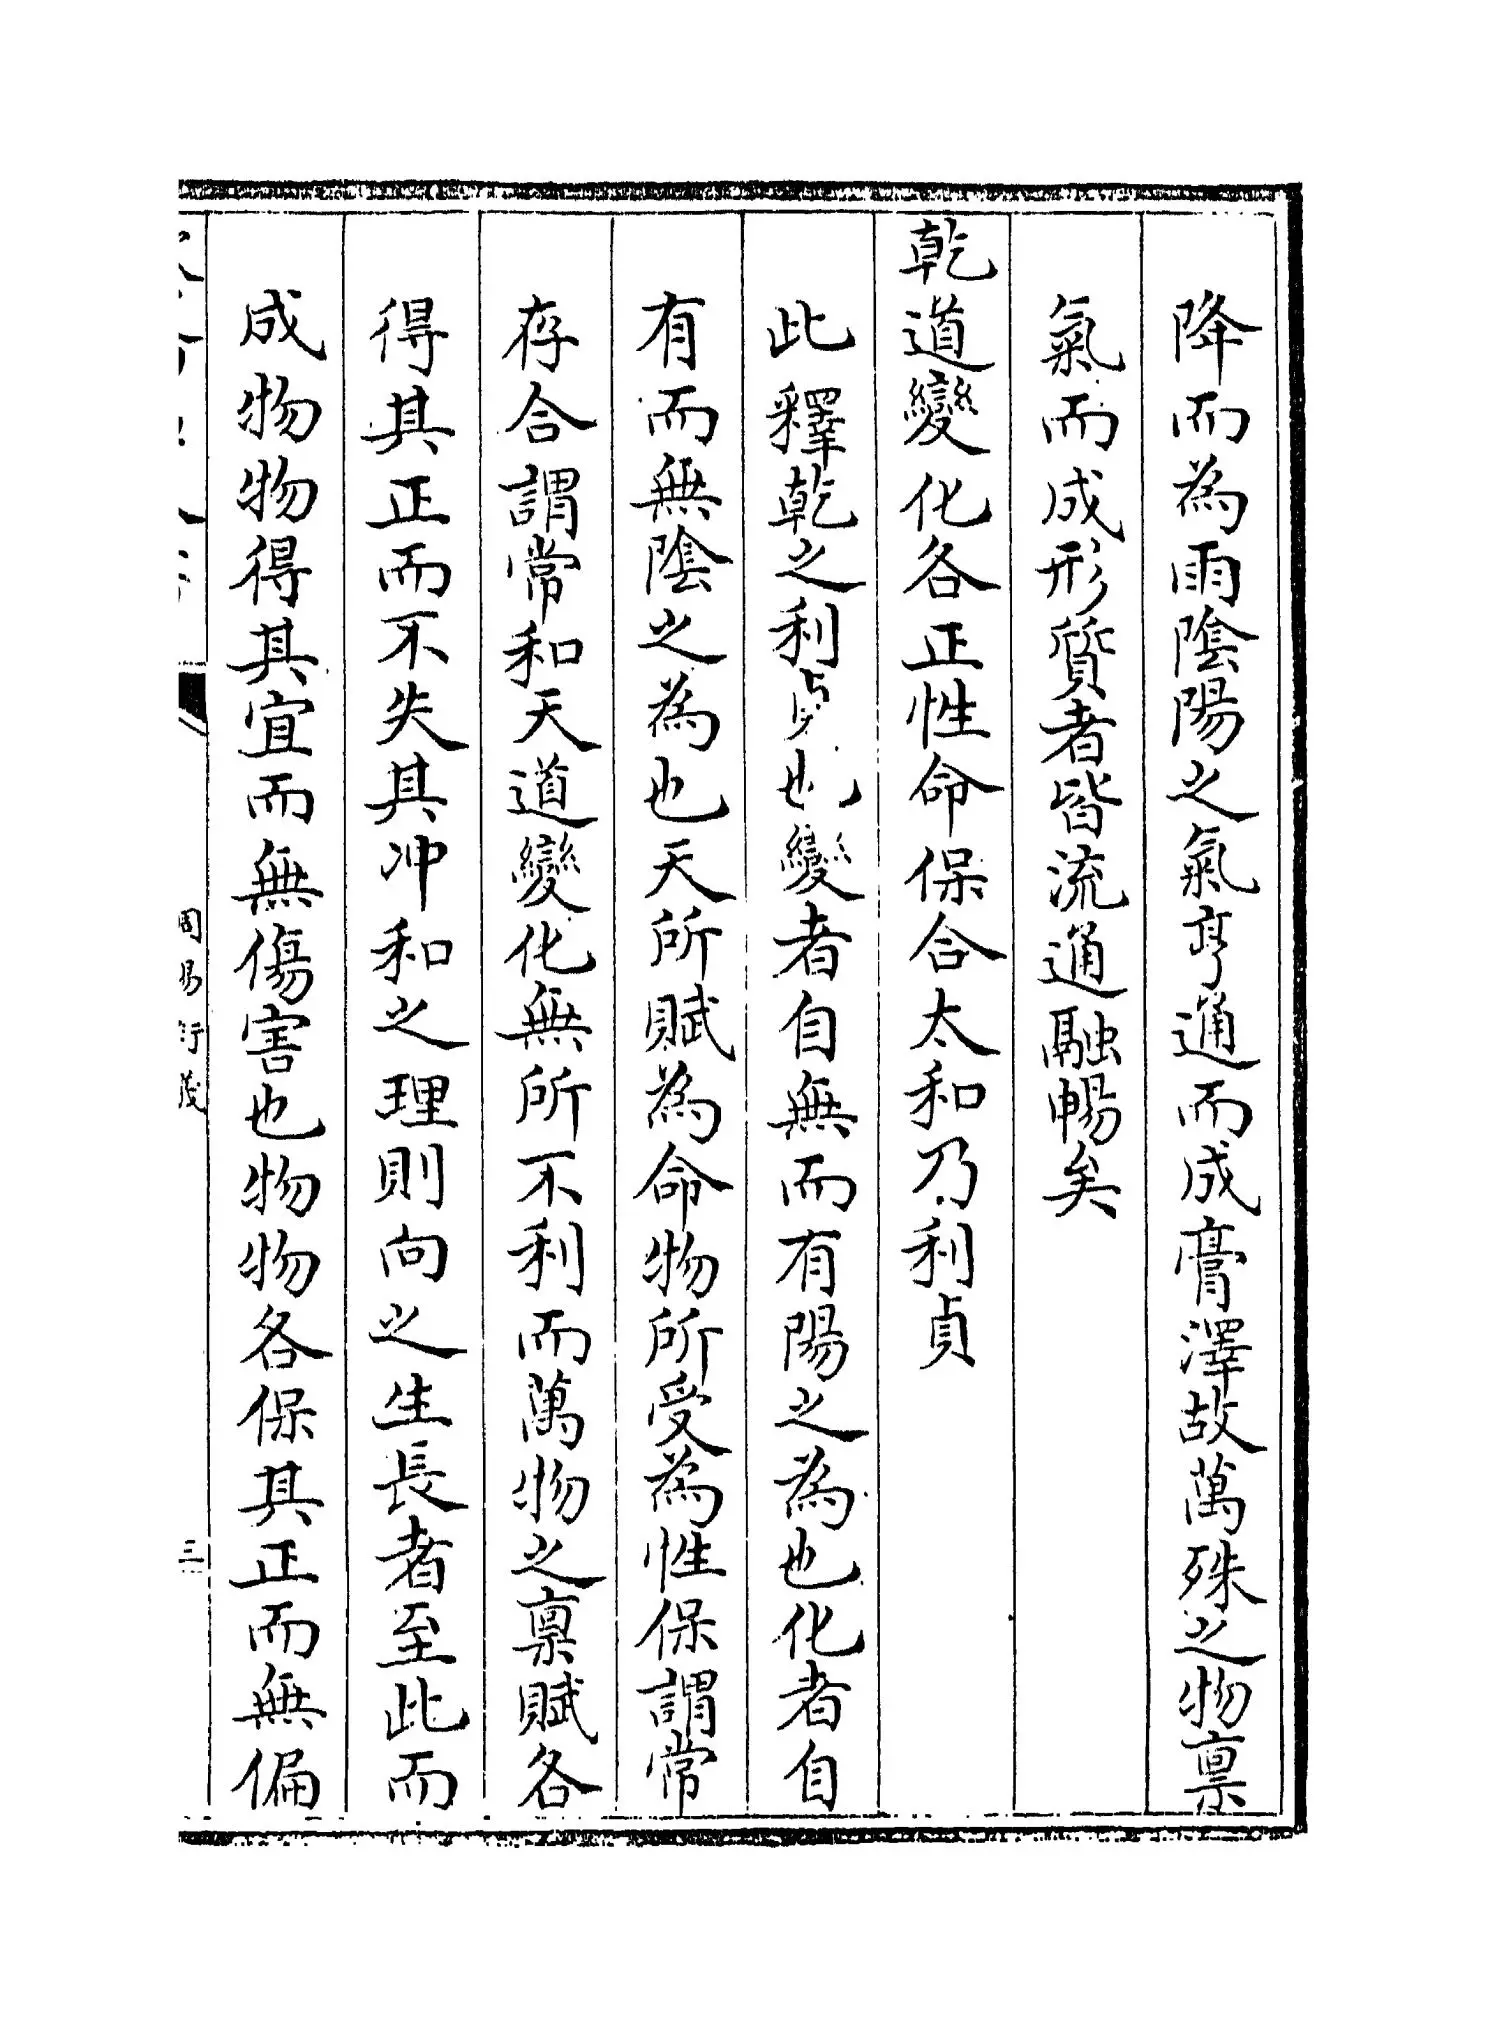 降而為雨陰陽之氣亨通而成膏澤故萬殊之物禀
氣而成形質者皆流通融暢矣
乾道變化各正性命保合太和乃利貞
此釋乾之利貞也變者自無而有陽之為也化者自
有而無陰之為也天所賦為命物所受為性保謂常
存合謂常和天道變化無所不利而萬物之禀賦各
得其正而不失其冲和之理則向之生長者至此而
成物物得其宜而無傷害也物物各保其正而無偏
周易衍義
三